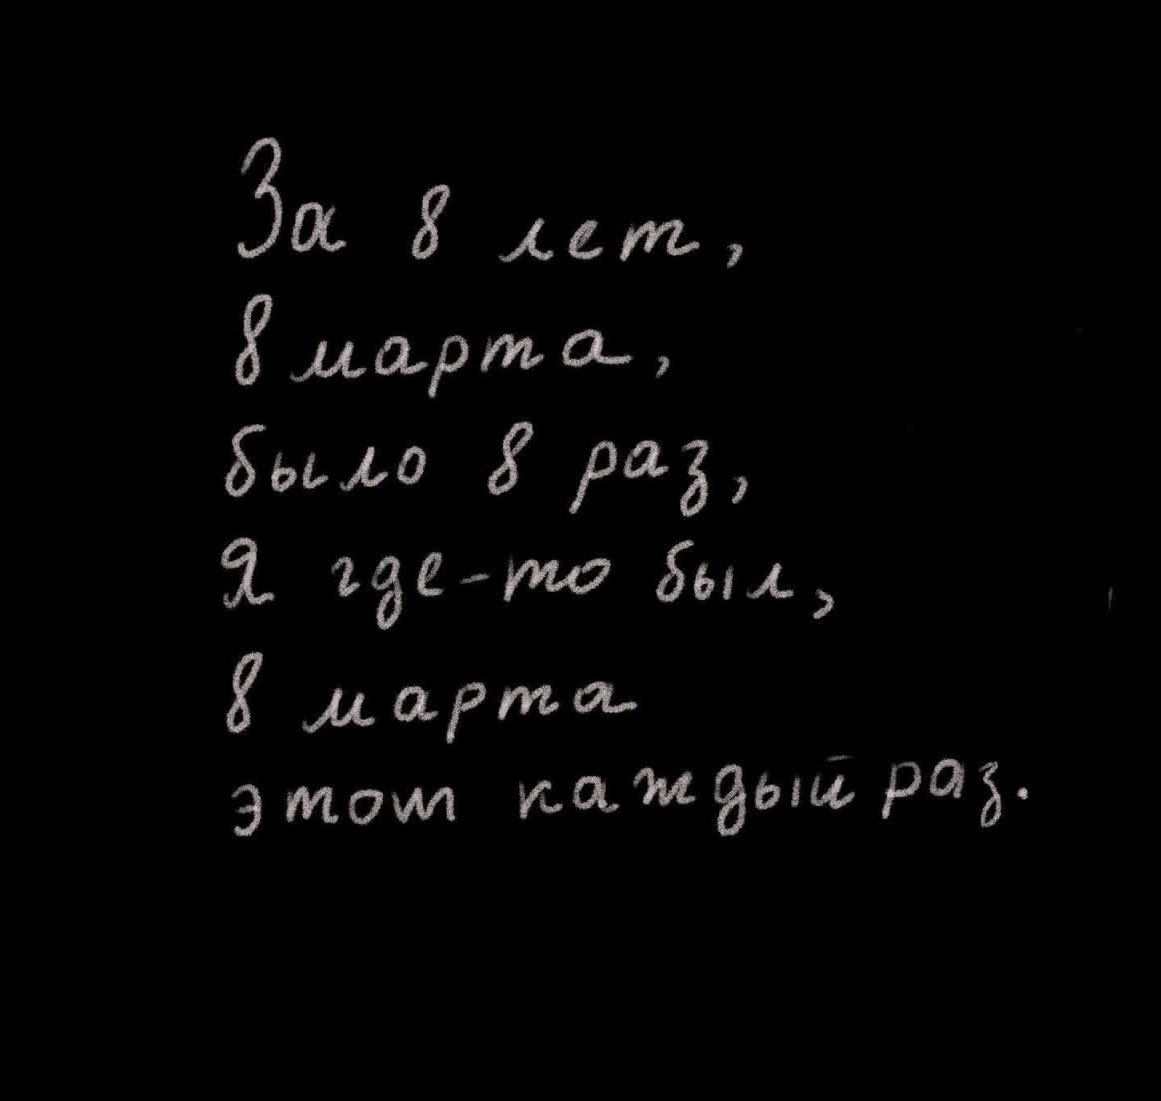 За 8 лет,
8 марта,
было 8 раз,
Я где-то был,
8 марта
этот каждый раз.